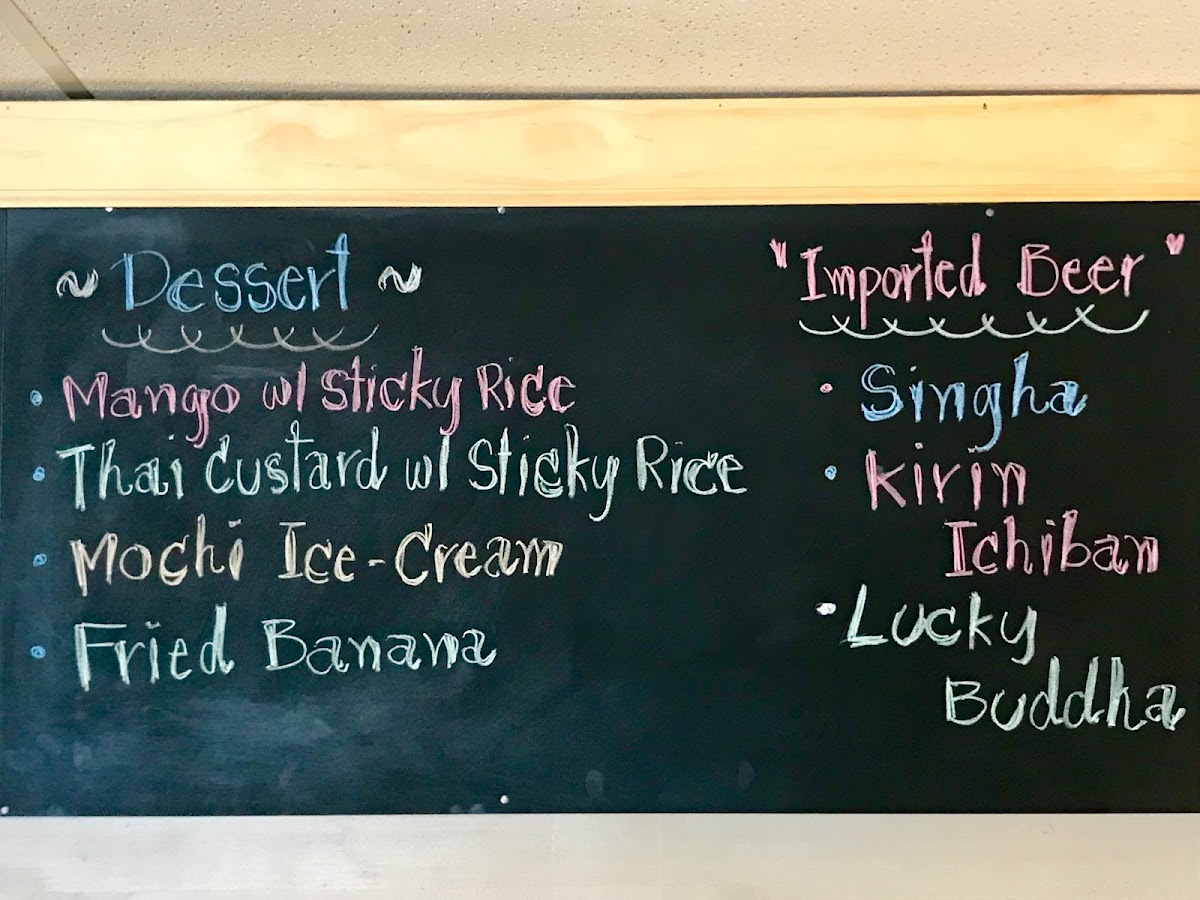 ~ Dessert ~
• Mango w/ Sticky Rice
• Thai Custard w/ Sticky Rice
• Mochi Ice-Cream
• Fried Banana
"Imported Beer"
• Singha
• Kirin
Ichiban
• Lucky
Buddha